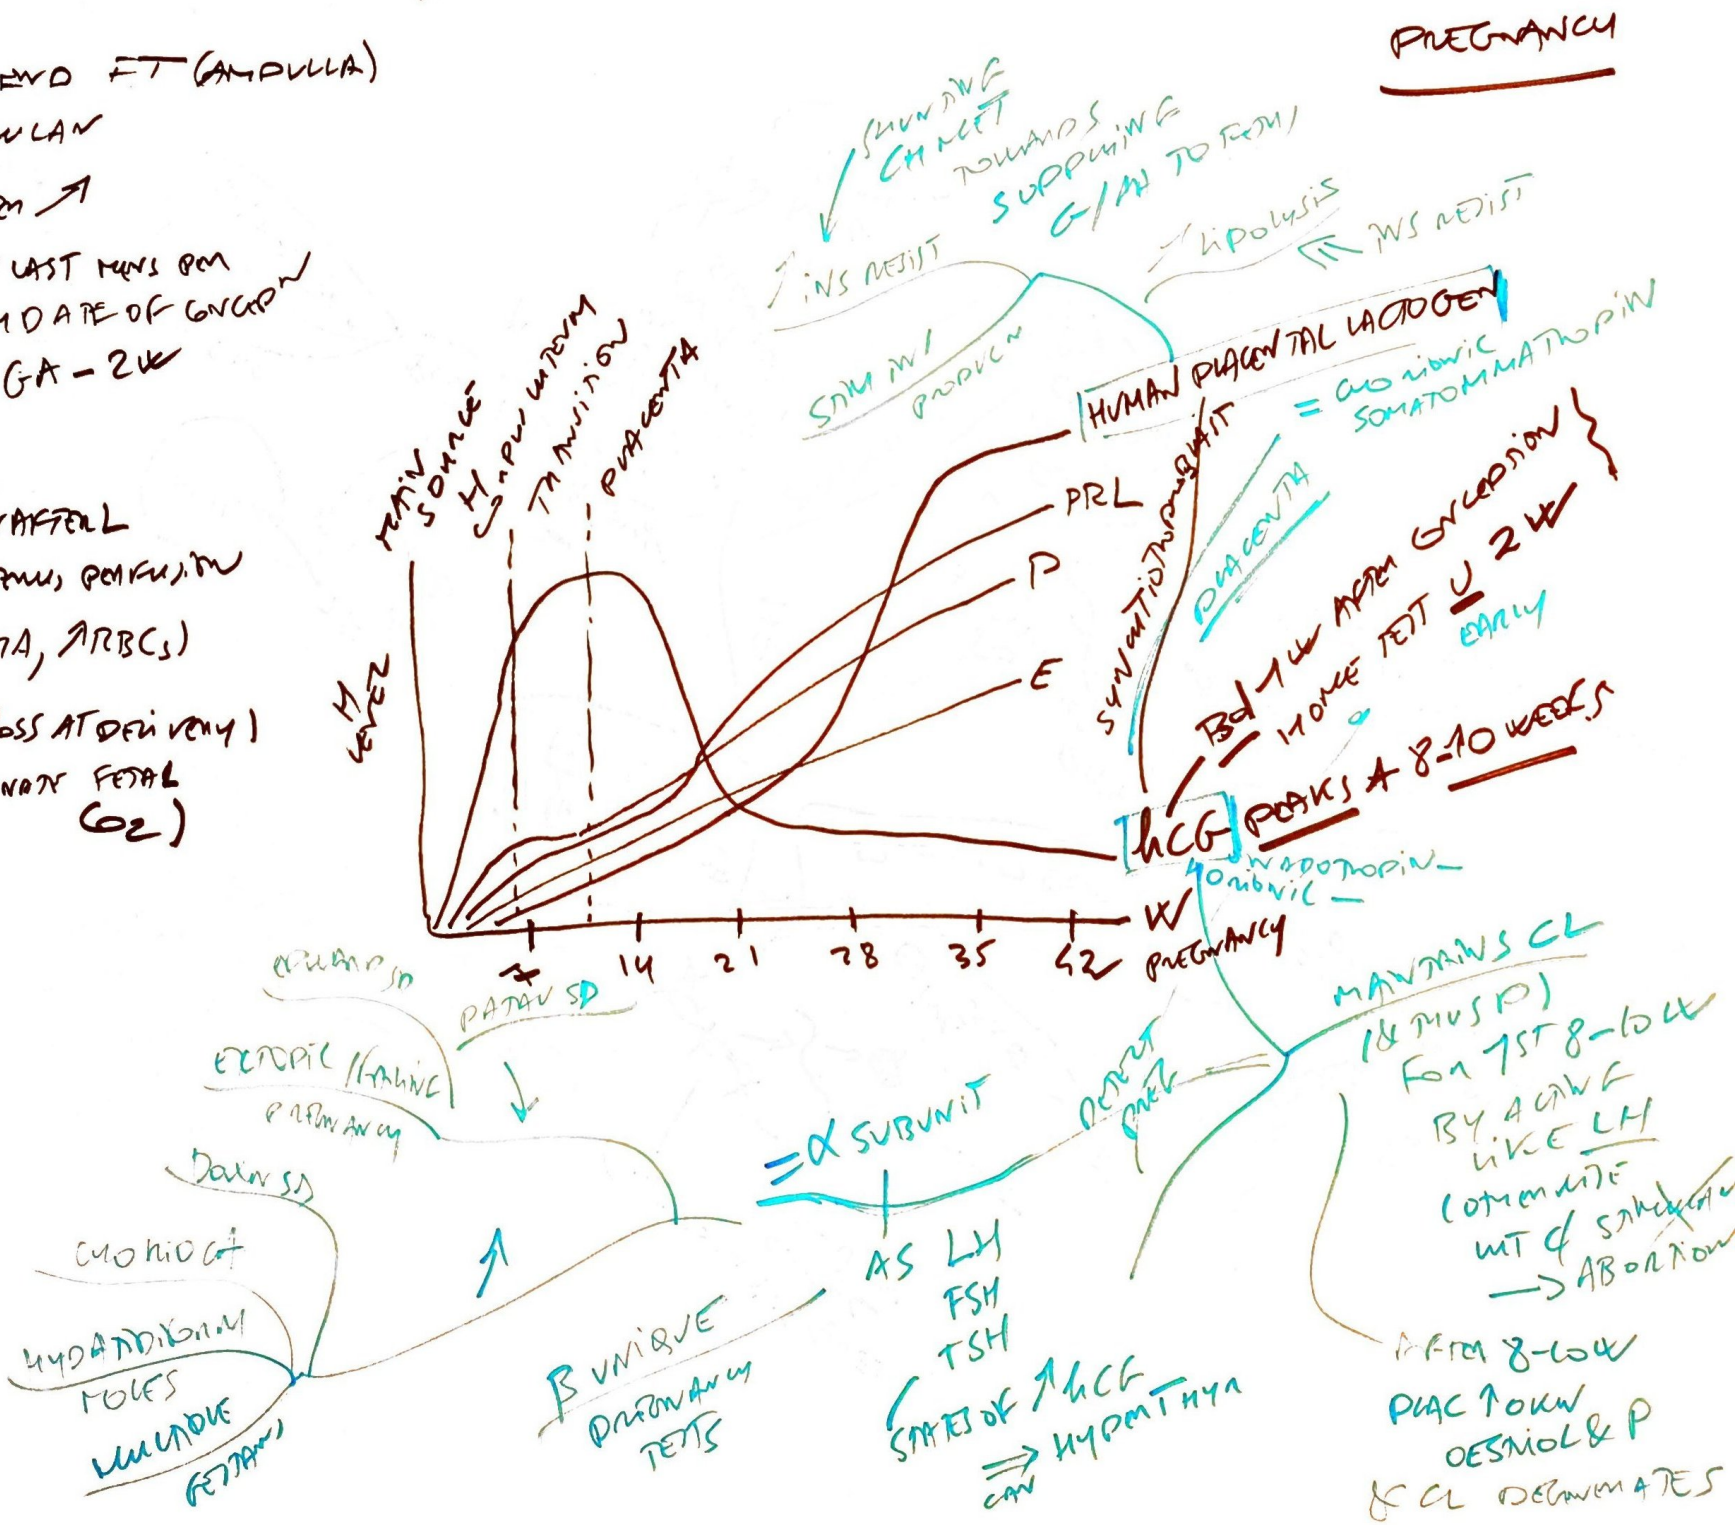 PREGNANCY
END FT (AMPULLA)
LAST MENS PER
DATE OF CONCEPN
GA - 2W
AFTER L
PERFUSION
↑RBCs)
OSS AT DELIVERY)
FETAL
CO2)
SHUNTING
CH MET
TOWARDS
SUPPLYING
G/AA TO FETUS
↑ INS RESIST
STIM INS
PRODUCN
↑ LIPOLYSIS
INS RESIST
HUMAN PLACENTAL LACTOGEN
= CHORIONIC
SOMATOMMATROPIN
MAIN
SOURCE
H
CORPUS LUTEUM
TRANSITION
PLACENTA
H
LEVEL
PRL
P
E
SYNCYTIOTROPHOBLAST
PLACENTA
Bd 1W AFTER CONCEPSION
HOME TEST U 2W
EARLY
hCG PEAKS A 8-10 WEEKS
GONADOTROPIN
CHORIONIC
7 14 21 28 35 42
W
PREGNANCY
MAINTAINS CL
(& THUS P)
FOR 1ST 8-10W
BY ACTING
LIKE LH
(OTHERWISE
→ ABORTION
AFTER 8-10W
PLAC ↑ OWN
OESRIOL & P
& CL DEGENERATES
DETECT
PREG
= α SUBUNIT
AS LH
FSH
TSH
STATES OF ↑ hCG
⇒ HYPERTHYR
CAN
β UNIQUE
PREGNANCY
TESTS
EDWARD SD
PATAU SD
ECTOPIC / FAILING
PREGNANCY
↓
↑
DOWN SD
CHORIOCA
HYDATIDIFORM
MOLES
MULTIPLE
GESTANS